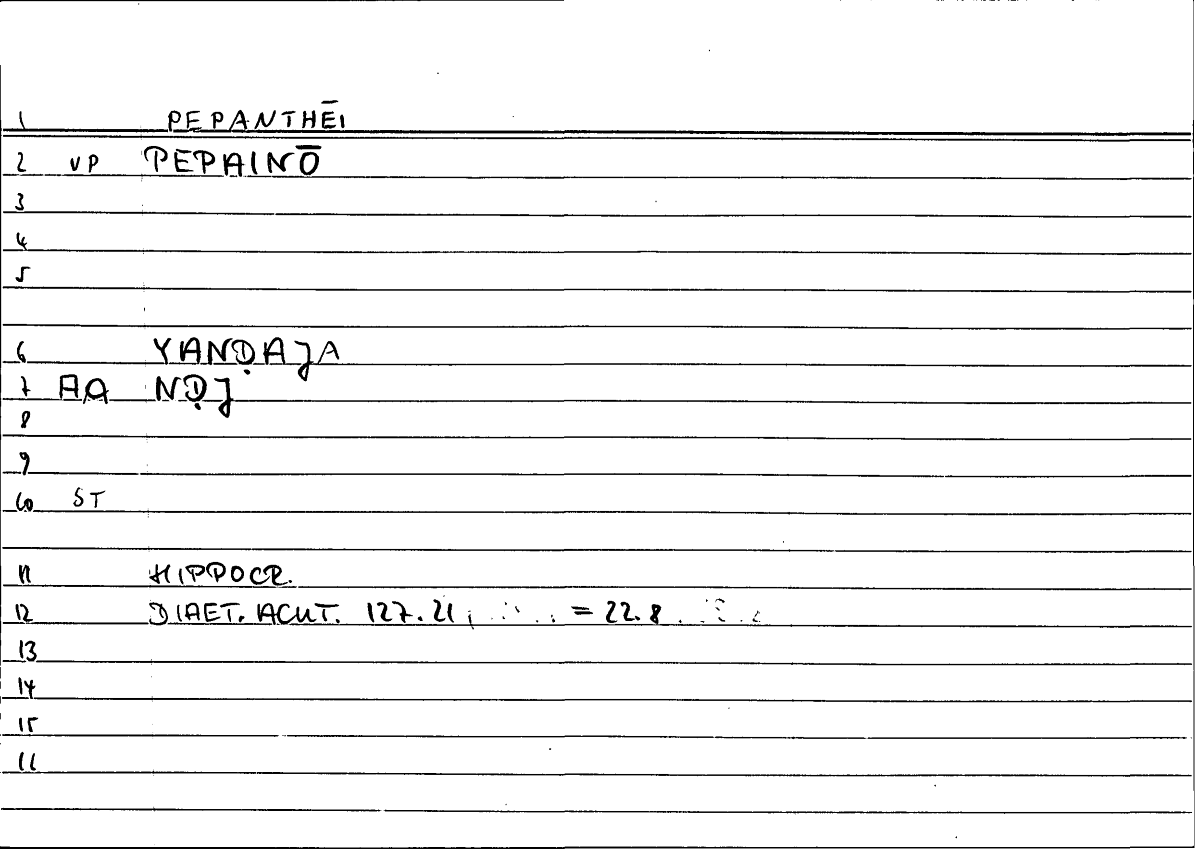 1 PEPANTHĒI
2 VP PEPAINŌ
3
4
5
6 YANḌAJA
7 AA NḌJ
8
9
10 ST
11 HIPPOCR.
12 DIAET. ACUT. 127.21, = 22.8
13
14
15
16